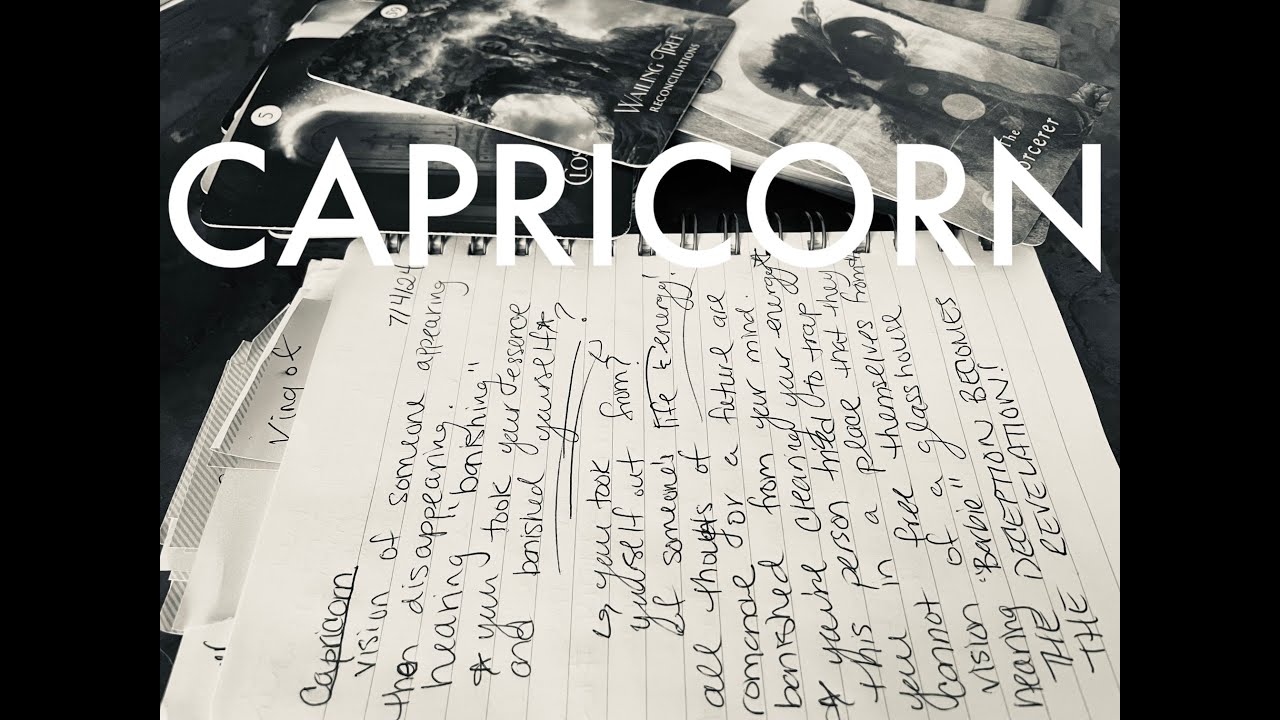 39
WAILING TREE
RECONCILIATIONS
5
CLOS
The
Sorcerer
CAPRICORN
King of
7/4/24
Capricorn
vision of someone appearing
then disappearing.
hearing "banishing"
* you took your essence
and banished yourself*
↳ you took ?
yourself out from?
of someone's life & energy!
all thoughts of
romance or a future are
banished from your mind.
* you're clearing your energy
this person tried to trap
you in a place that they
cannot free themselves from
vision of a glass house
hearing "Barbie"
THE DECEPTION BECOMES
THE REVELATION!